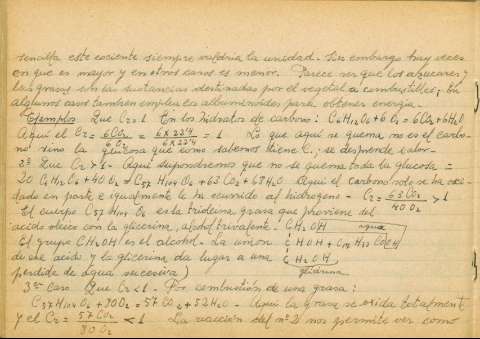 sencilla este cociente siempre valdria la unidad. Sin embargo hay veces
en que es mayor y en otros casos es menor. Parece ser que los azucares y
las grasas son las sustancias destinadas por el vegetal a combustibles. En
algunos casos tambien emplea los albuminoides para obtener energia.
Ejemplos Que Cr=1 En los hidratos de carbono: C6H12O6+6O2=6CO2+6H2O
Aqui el Cr = 6CO2/6O2 = 6x22'4/6x22'4 = 1 Lo que aqui se quema no es el carbo-
no sino la glucosa que como sabemos tiene C.; se desprende calor-
2º Que Cr>1- Aqui supondremos que no se quema toda la glucosa =
20 C6H12O6+40O2=C57H104O6+63CO2+68H2O Aqui el carbono solo se ha oxi-
dado en parte e igualmente le ha ocurrido al hidrogeno - Cr= 63CO2/40O2 >1
El cuerpo C57H104O6 es la trioleina grasa que proviene del
acido oleico con la glicerina, alcohol trivalente. CH2OH agua
El grupo CH2OH es el alcohol - La union CHOH + C17H33COOH
de ese acido y la glicerina da lugar a una CH2OH
perdida de agua sucesiva) glicerina
3er caso Que Cr<1 - Por combustión de una grasa:
C57H104O6+80O2=57CO2+52H2O - Aqui la grasa se oxida totalmente
y el Cr= 57CO2/80O2 <1 La reacción del nº 2 nos permite ver como